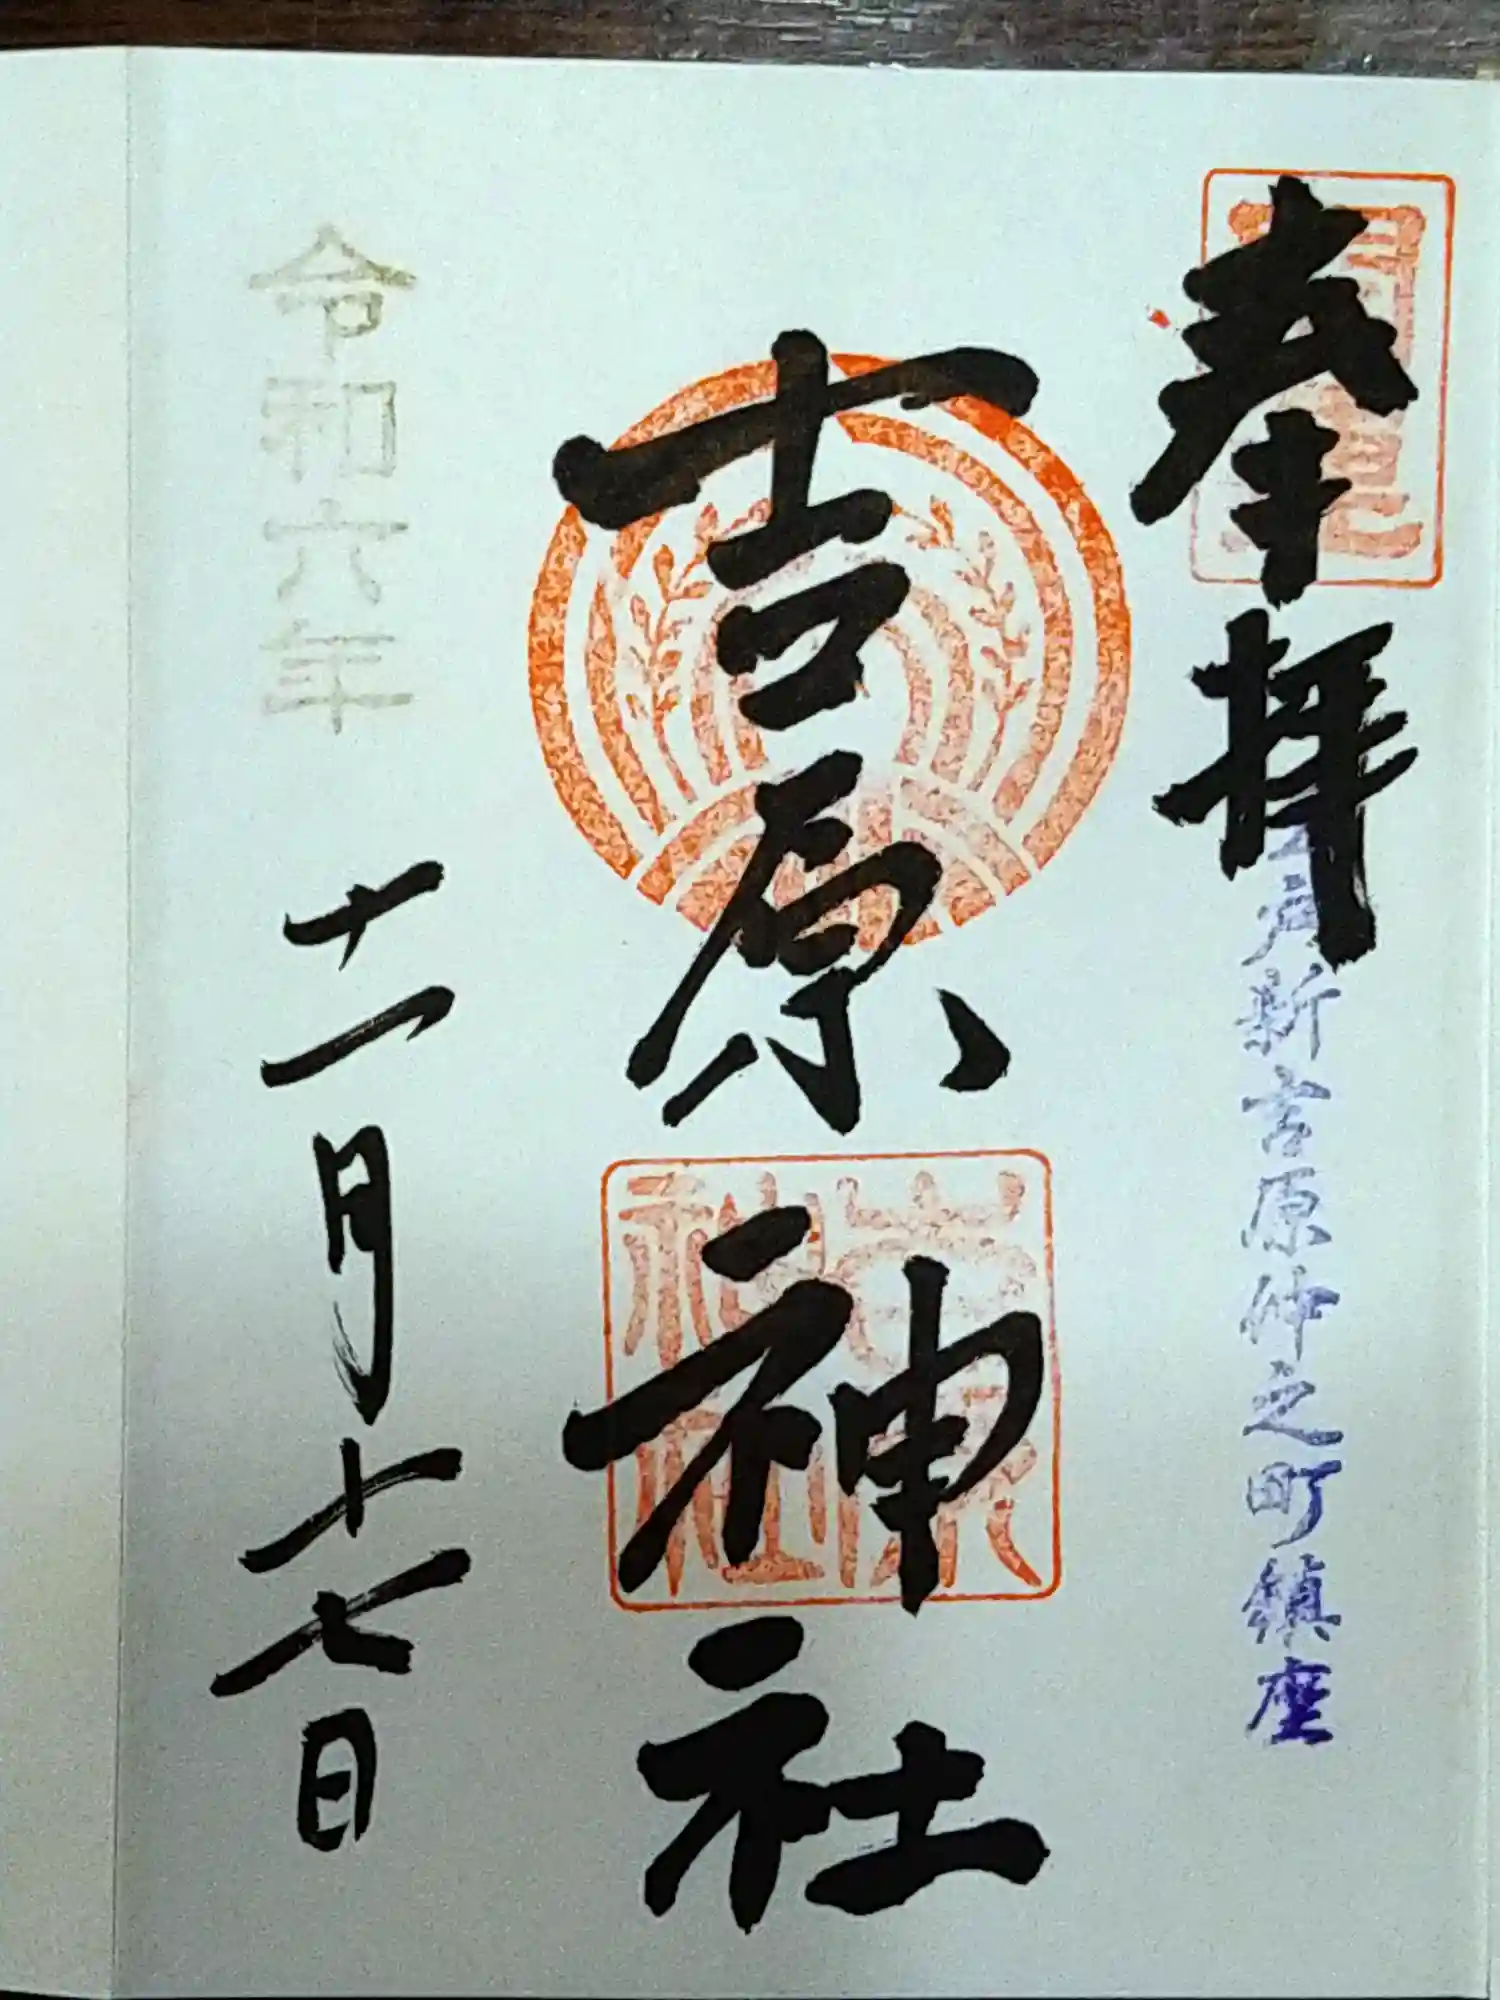 奉拝
月新吉原仲之町鎮座
吉原神社
吉原神社
令和六年
十一月十七日